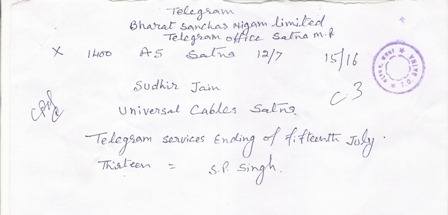 Telegram
Bharat Sanchar Nigam limited
Telegram office Satna M.P
X 1400 A5 Satna 12/7 15/16
Sudhir Jain
C3
Universal Cables Satna
Telegram services Ending of fifteenth July.
Thirteen =
S.P. Singh.